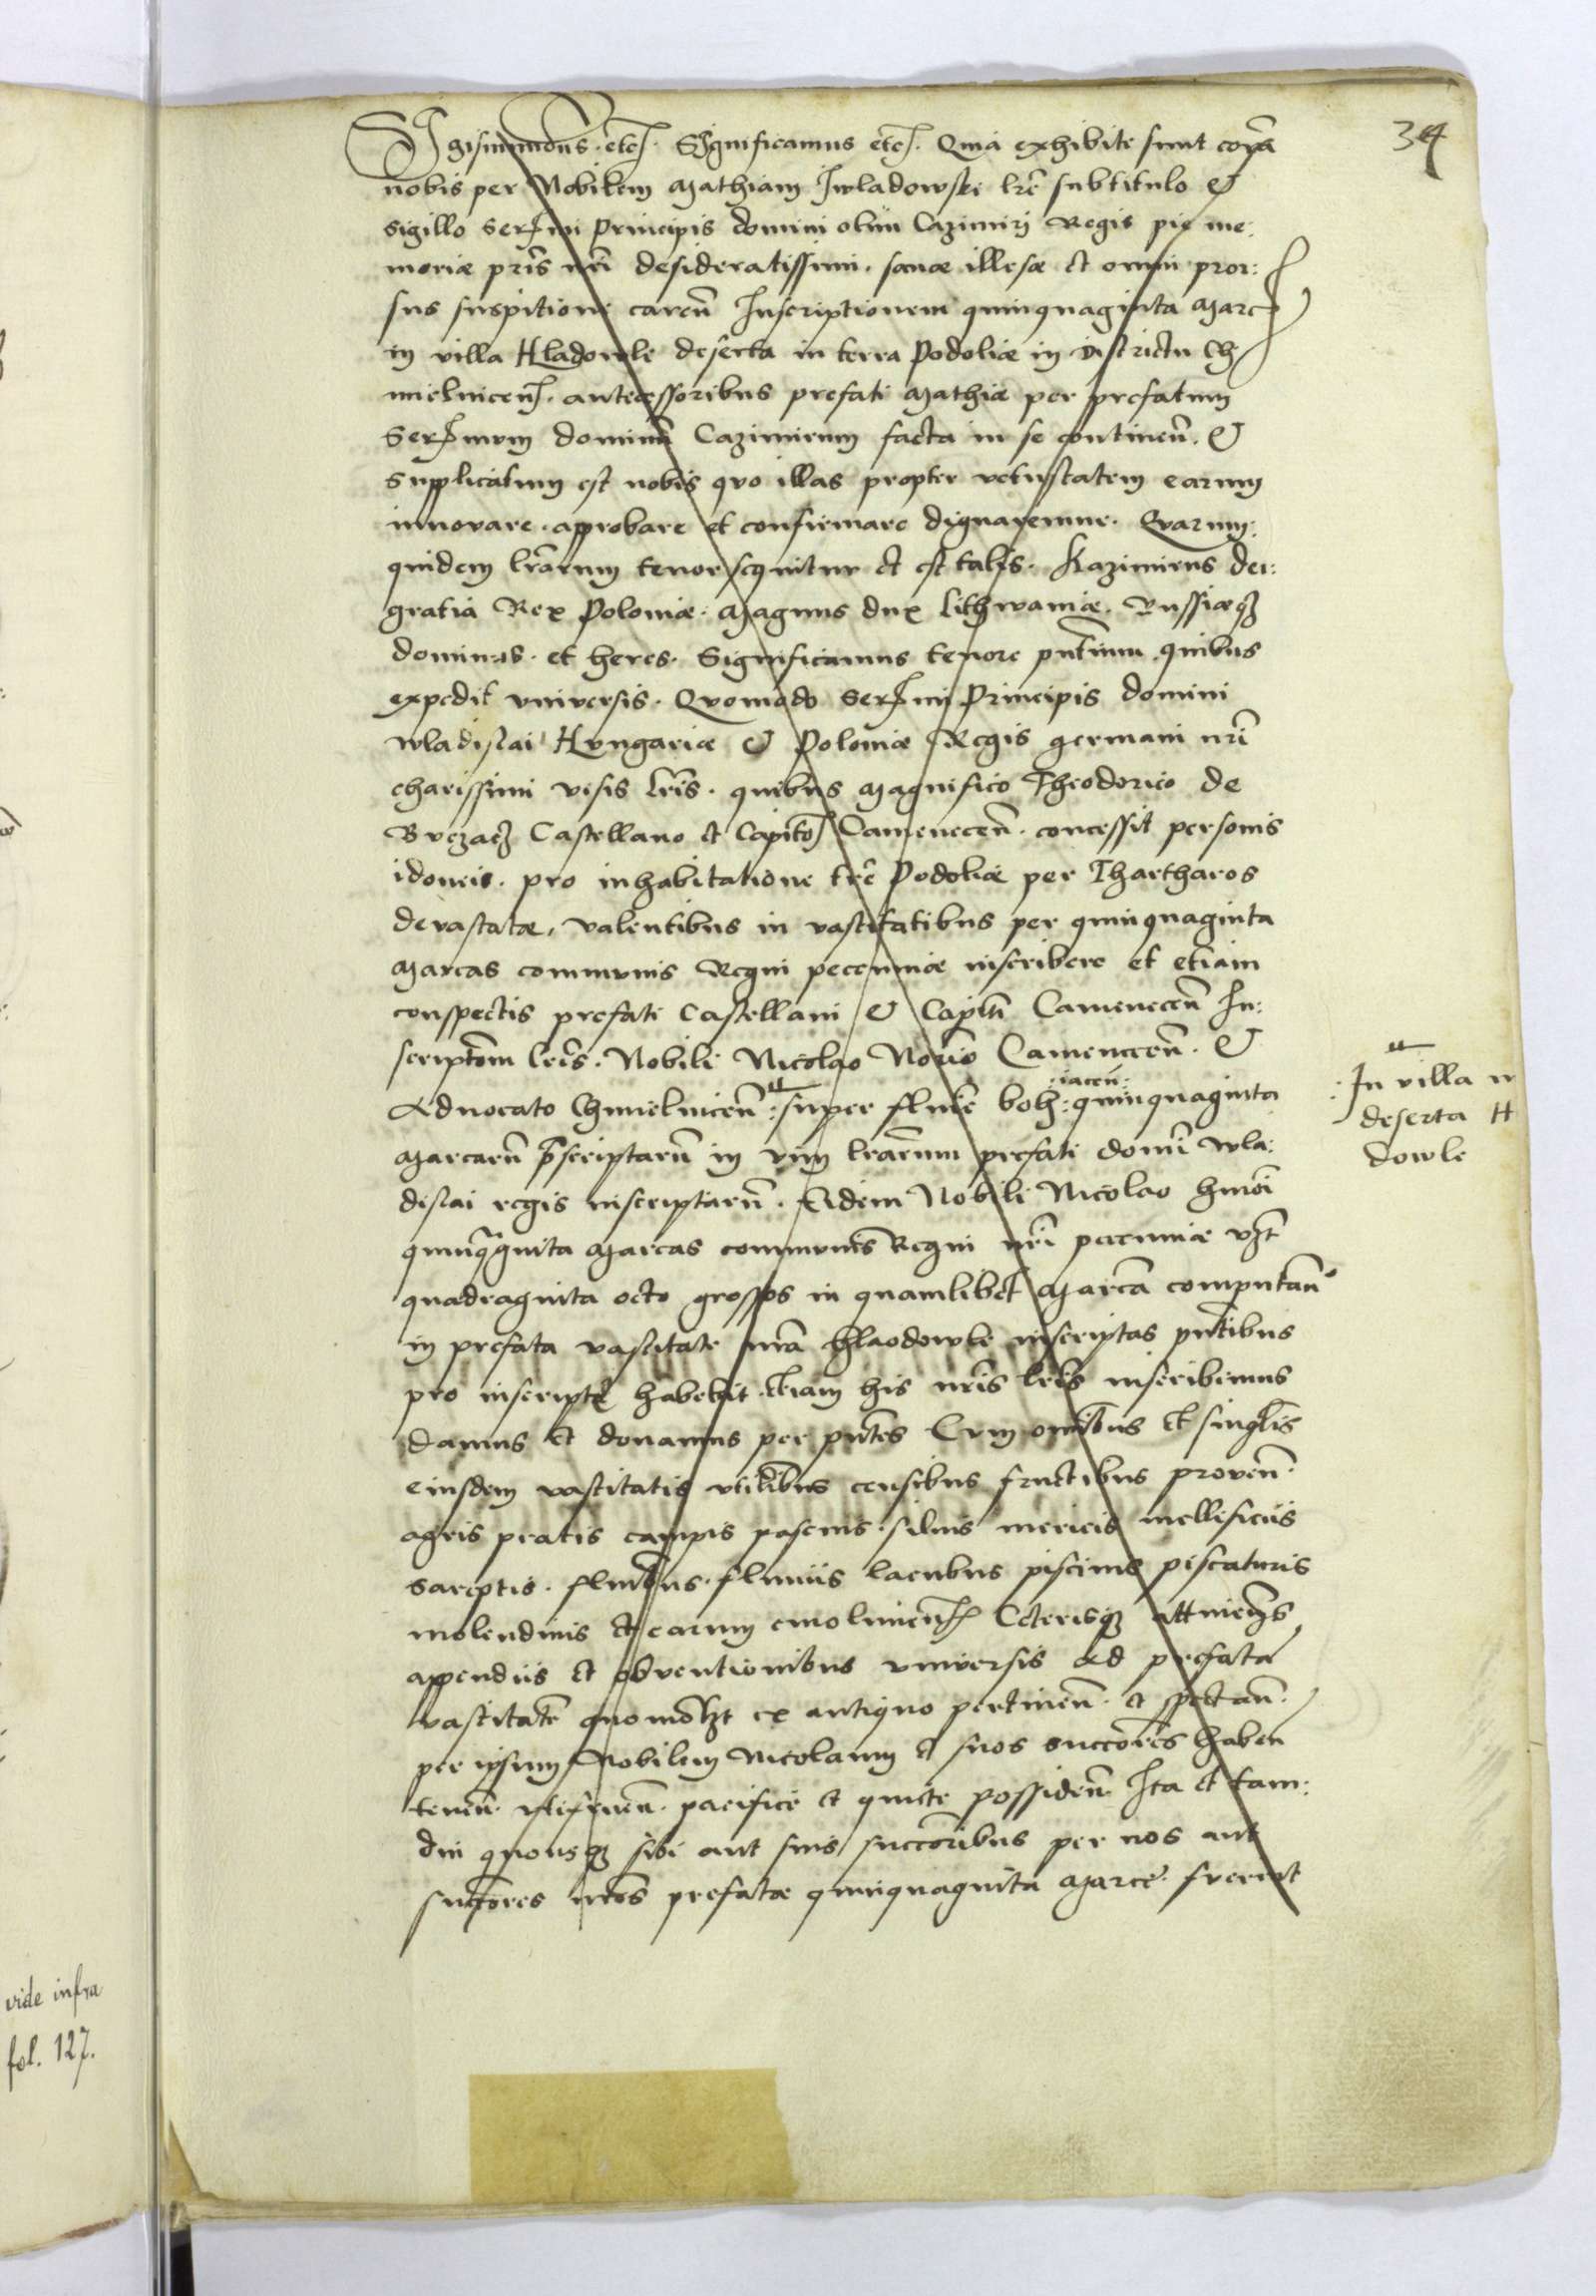 34
Sigismundus etc. Significamus etc. Quia exhibite sunt corā
nobis per Nobilem Mathiam Iwladowski lr̄e subtitulo &
sigillo Serm̄i Principis domini olim Cazimirj Regis pię me:
moriæ pr̄is nr̄i desideratissimi. sanæ illesæ et omni pror:
sus suspitione careñ Inscriptionem quinquaginta Marc
in villa Hladowle deserta in terra Podoliæ in districtu Ch
mielniceñ. antecessoribus prefati Mathiæ per prefatum
Serm̄um dominū Cazimirum facta in se continen̄. &
supplicatum est nobis quo illas propter vetustatem earum
innovare. approbare et confirmare dignaremur. Quarum:
quidem lr̄arum tenor sequitur et est talis. Kazimirus dei:
gratia Rex Poloniæ. Magnus dux Lithwaniæ. Russiæqz
dominus. et heres. Significamus tenore pn̄tium quibus
expedit vniversis. Quomodo Serm̄i Principis domini
wladislai Hungariæ & Poloniæ Regis germani nr̄i
charissimi visis lr̄is. quibus Magnifico Theodorico de
Buczacz Castellano et Capit̄o Cameneceñ. concessit personis
idoneis. pro inhabitatione tr̄e Podoliæ per Thartharos
devastatæ, valentibus in vastitatibus per quinquaginta
Marcas communis Regni pecenniæ inscribere et etiam
conspectis prefati Castellani & Capit̄i Cameneceñ In:
script̄om lr̄is. Nobili Nicolao Cameneceñ. &
Aduocato Chmielniceñ: super fluuē boh: :iaceñ: quinquaginta
Marcarū p̄scriptarū in vim lr̄arum prefati domī wla:
dislai regis inscriptarū. Eidem Nobili Nicolao hmōi
quinq̄ginta Marcas communis Regni nr̄i pecuniæ vzt
quadraginta octo grossos in quamlibet Marcā computan̄
in prefata vastitate nr̄a Hlaodowle inscriptas pn̄tibus
pro inscript̄ habebit. Etiam his nr̄is lr̄is inscribimus
damus et donamus per pn̄tes Cum om̄ibus et singl̄is
eiusdem vastitatis vtilit̄bus censibus fructibus proveñ.
agris pratis campis pascuis. siluis mericis mellificiis
. flum̄bus. fluuiis lacubus piscinis piscaturis
molendinis et earum emolumen̄ Ceterisqz attinen̄s
appendiis et obventionibus vniversis ad prefatā
vastitatē quomōlzt ex antiquo pertineñ. et spectan̄.
per ipsum Nobilem Nicolaum et suos succ̄ores habeñ
teneñ. vtifrueñ. pacifice et quiete possideñ Ita et tam:
diu quousqz sibi aut suis succ̄oribus per nos aut
succ̄ores nr̄os prefatæ quinquaginta Marce. fuerint
In villa
deserta H
dowle
vide infra
fol. 127.